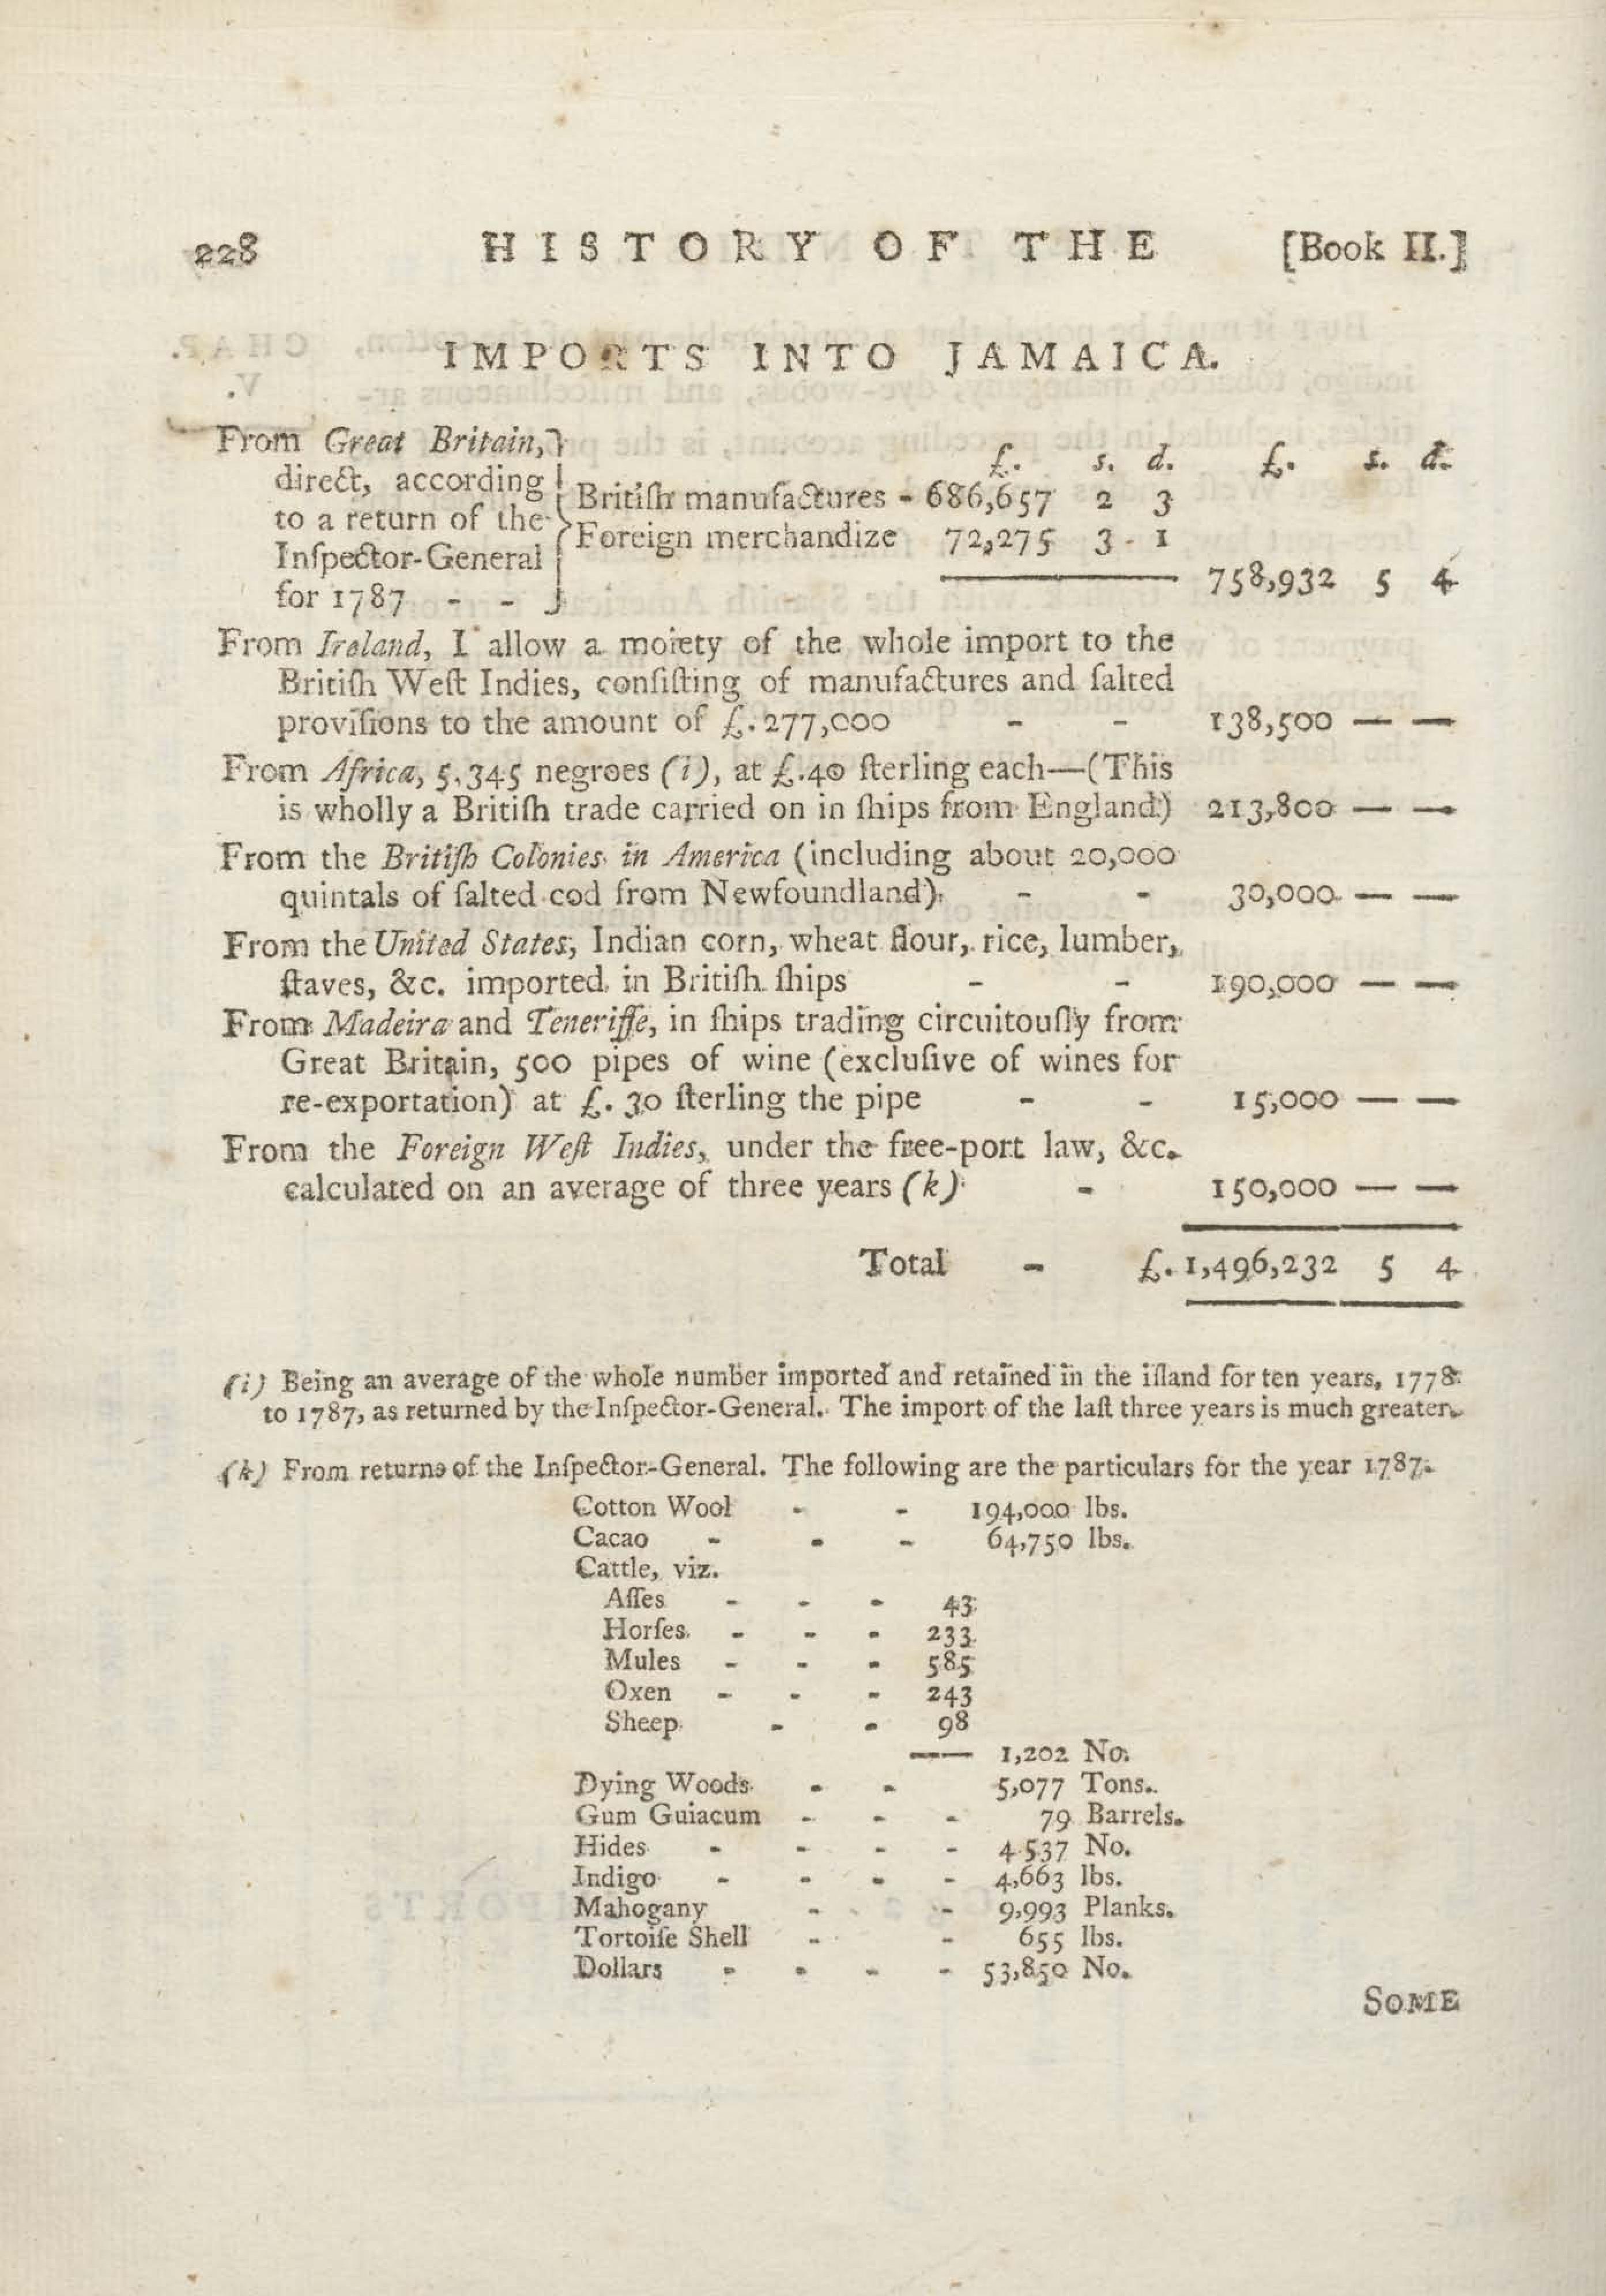 228 HISTORY OF THE [Book II.]
IMPORTS INTO JAMAICA.
From Great Britain,
direct, according
to a return of the
Inſpector-General
for 1787 - -
£. s. d. £. s. d.
Britiſh manufactures - 686,657 2 3
Foreign merchandize 72,275 3 1
758,932 5 4
From Ireland, I allow a moiety of the whole import to the
Britiſh Weſt Indies, conſiſting of manufactures and ſalted
proviſions to the amount of £.277,000 - - 138,500 — —
From Africa, 5,345 negroes (i), at £.40 ſterling each—(This
is wholly a Britiſh trade carried on in ſhips from England) 213,800 — —
From the Britiſh Colonies in America (including about 20,000
quintals of ſalted cod from Newfoundland) - - 30,000 — —
From the United States, Indian corn, wheat flour, rice, lumber,
ſtaves, &c. imported in Britiſh ſhips - - 190,000 — —
From Madeira and Teneriffe, in ſhips trading circuitouſly from
Great Britain, 500 pipes of wine (excluſive of wines for
re-exportation) at £. 30 ſterling the pipe - - 15,000 — —
From the Foreign Weſt Indies, under the free-port law, &c.
calculated on an average of three years (k) - 150,000 — —
Total - £. 1,496,232 5 4
(i) Being an average of the whole number imported and retained in the iſland for ten years, 1778
to 1787, as returned by the Inſpector-General. The import of the laſt three years is much greater.
(k) From returns of the Inſpector-General. The following are the particulars for the year 1787.
Cotton Wool - - 194,000 lbs.
Cacao - - - 64,750 lbs.
Cattle, viz.
Aſſes - - - 43
Horſes - - - 233
Mules - - - 585
Oxen - - - 243
Sheep - - 98
—— 1,202 No.
Dying Woods - - 5,077 Tons.
Gum Guiacum - - - 79 Barrels.
Hides - - - - 4537 No.
Indigo - - - - 4,663 lbs.
Mahogany - - 9,993 Planks.
Tortoiſe Shell - - 655 lbs.
Dollars - - - - 53,850 No.
SOME